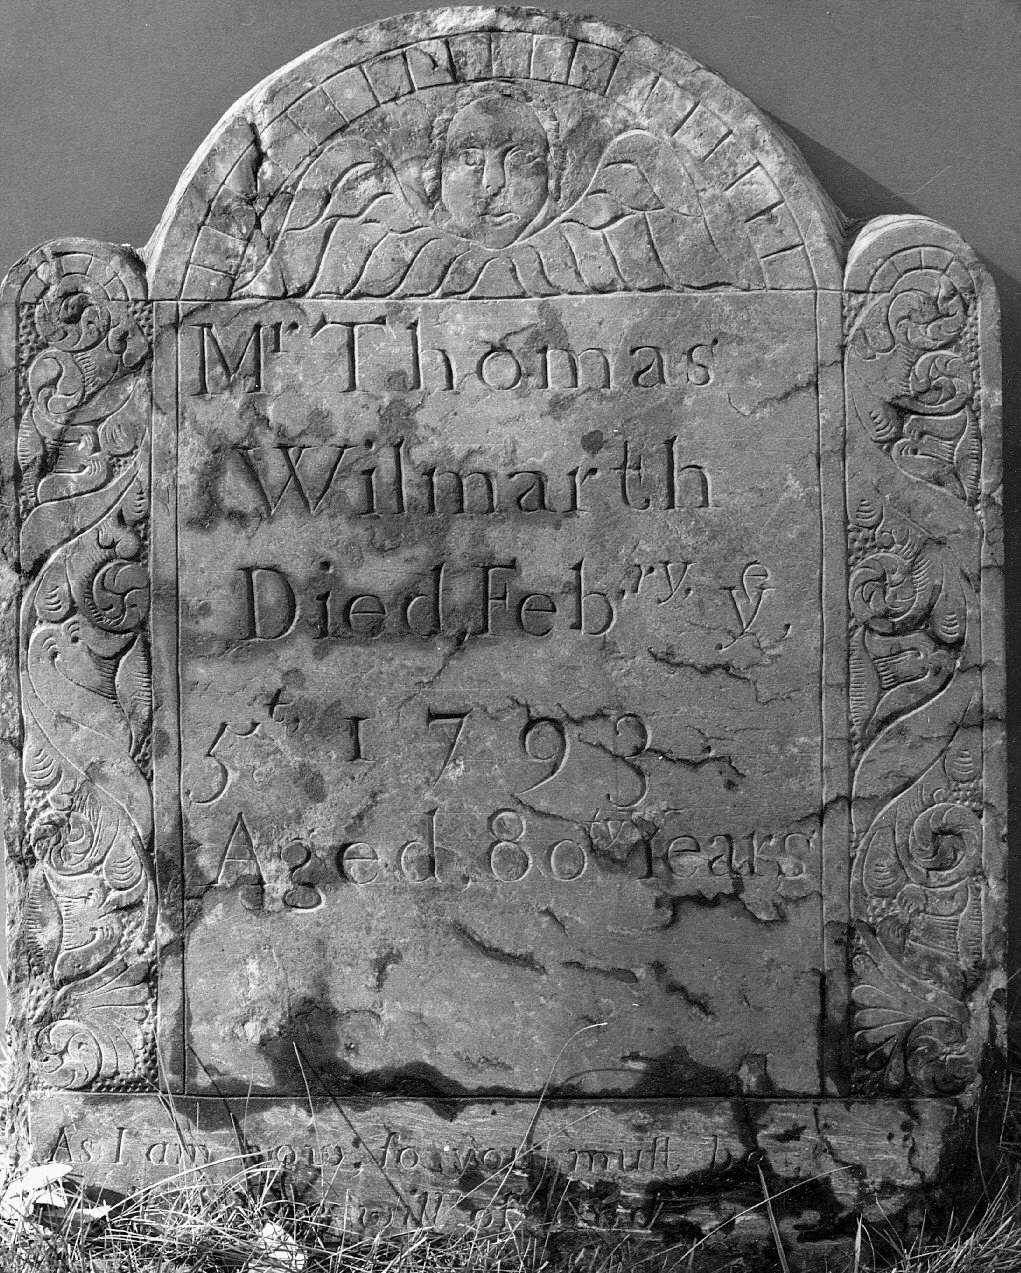 Mr Thomas
Wilmarth
Died Febry ye
5th 1793
Aged 80 Years
As I am now so you must b